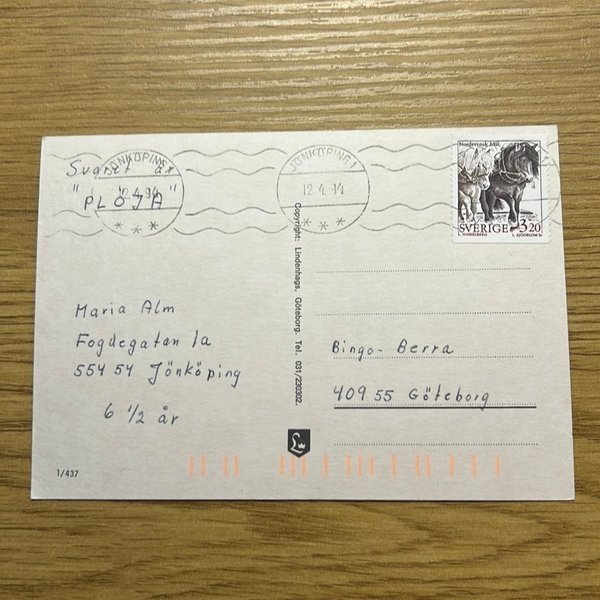 Svaret är
"PLÖJA"
JÖNKÖPING
12.4.94
JÖNKÖPING 1
12.4.94
Nordsvensk häst
SVERIGE 3.20
L. SJÖÖBLOM sc
Copyright: Lindenhags, Göteborg. Tel. 031/230302.
Maria Alm
Fogdegatan 1a
554 54 Jönköping
6 1/2 år
Bingo-Berra
409 55 Göteborg
L
1/437